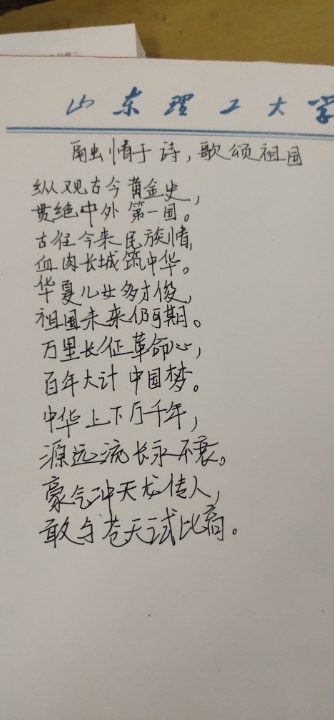 山东理工大学
融情于诗，歌颂祖国
纵观古今黄金史，
贯绝中外第一国。
古往今来民族情，
血肉长城筑中华。
华夏儿女多才俊，
祖国未来仍可期。
万里长征革命心，
百年大计中国梦。
中华上下万千年，
源远流长永不衰。
豪气冲天龙传人，
敢与苍天试比高。